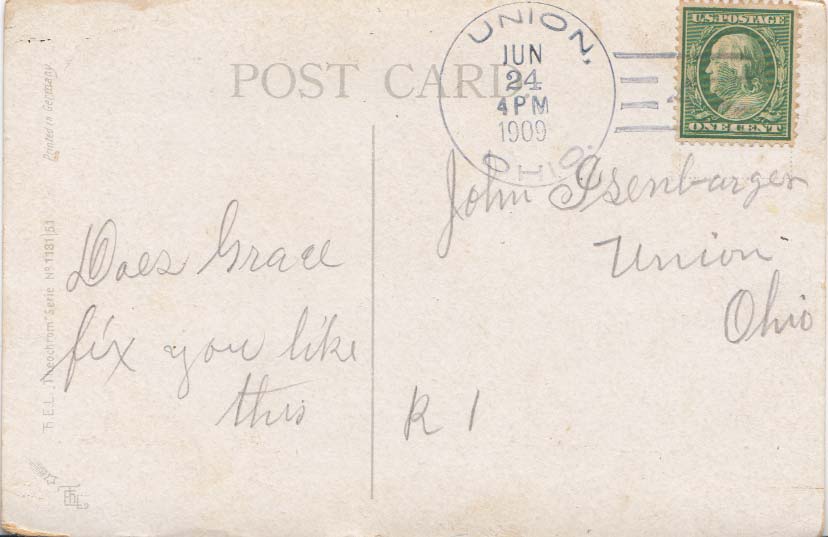 POST CARD.
UNION,
JUN
24
4 PM
1909
OHIO.
U.S. POSTAGE
ONE CENT
John Isenbarger
Union
Ohio
R 1
Does Grace
fix you like
this
Th. E. L. Theochrom" Serie Nº 1181|51
Printed in Germany